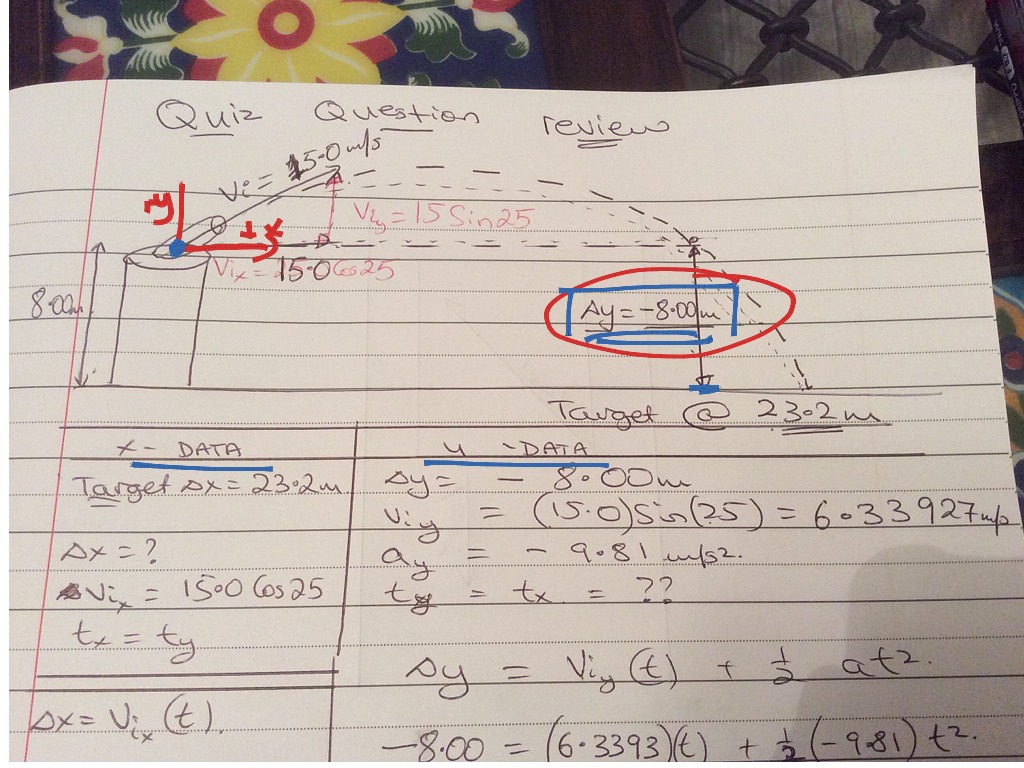 Quiz Question review
Vi = 15.0 m/s
Viy = 15 Sin 25
y
+ x
Vix = 15.0 Cos 25
8.00m
Δy = -8.00m
Target @ 23.2 m
x - DATA
Target Δx = 23.2m
Δx = ?
Vix = 15.0 Cos 25
tx = ty
Δx = Vix (t).
y - DATA
Δy = - 8.00m
Viy = (15.0) Sin (25) = 6.33927 m/s
ay = - 9.81 m/s2.
ty = tx = ??
Δy = Viy (t) + 1/2 at2.
-8.00 = (6.3393)(t) + 1/2 (-9.81) t2.